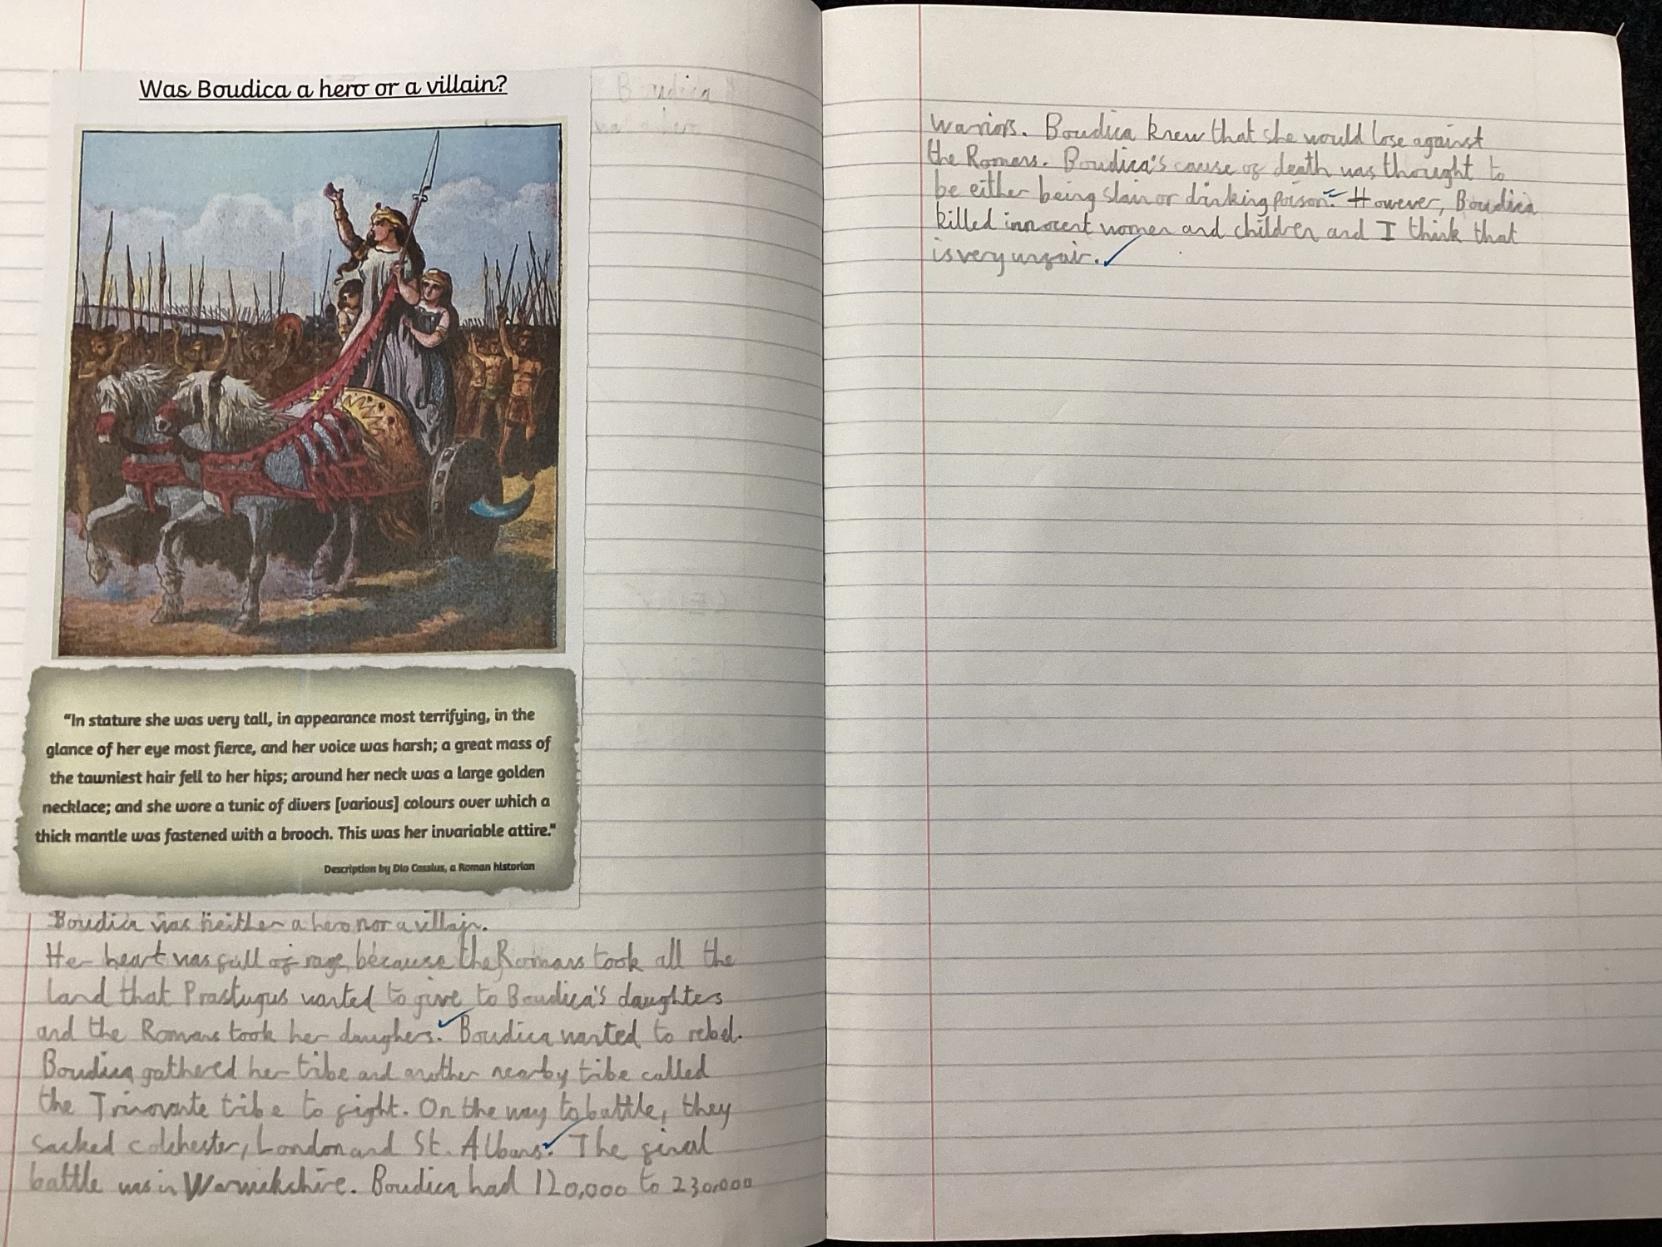 Was Boudica a hero or a villain?
"In stature she was very tall, in appearance most terrifying, in the
glance of her eye most fierce, and her voice was harsh; a great mass of
the tawniest hair fell to her hips; around her neck was a large golden
necklace; and she wore a tunic of divers [various] colours over which a
thick mantle was fastened with a brooch. This was her invariable attire."
Description by Dio Cassius, a Roman historian
Boudica was neither a hero nor a villain.
Her heart was full of rage, because the Romans took all the
land that Prastugus wanted to give to Boudica's daughters
and the Romans took her daughers. Boudica wanted to rebel.
Boudica gathered her tribe and another nearby tribe called
the Trinovante tribe to fight. On the way to battle, they
sacked colchester, London and St. Albans. The final
battle was in Warwickshire. Boudica had 120,000 to 230,000
warriors. Boudica knew that she would lose against
the Romans. Boudica's cause of death was thought to
be either being slain or drinking poison. However, Boudica
killed innocent women and children and I think that
is very unfair.